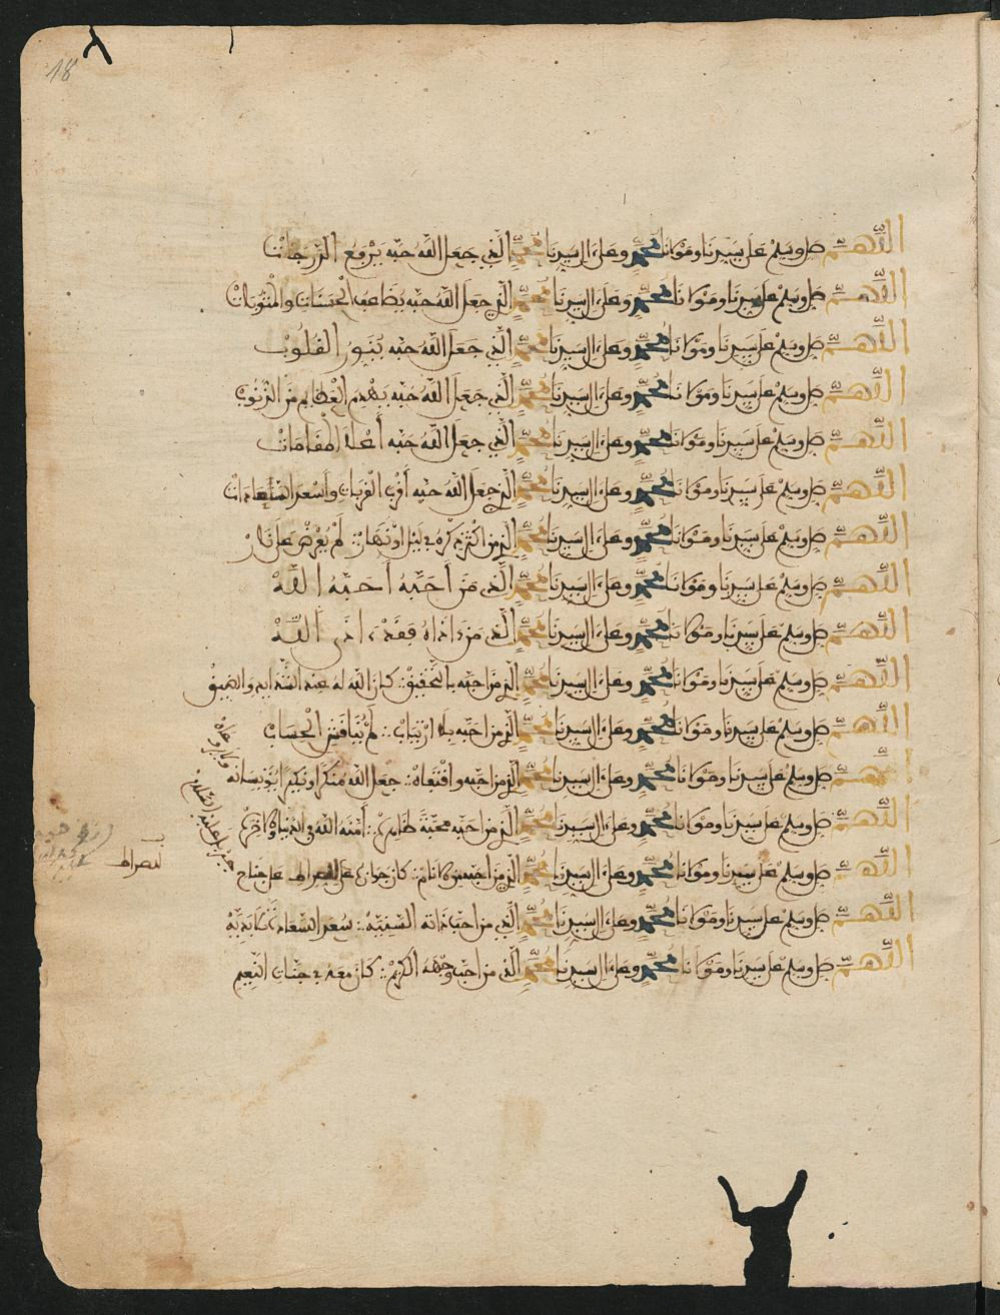 18
اللهم صل وسلم على سيدنا ومولانا محمد وعلى ءال سيدنا محمد الذي جعل الله حبه يرفع الدرجات
اللهم صل وسلم على سيدنا ومولانا محمد وعلى ءال سيدنا محمد الذي جعل الله حبه يضاعف الحسنات والمثوبات
اللهم صل وسلم على سيدنا ومولانا محمد وعلى ءال سيدنا محمد الذي جعل الله حبه ينور القلوب
اللهم صل وسلم على سيدنا ومولانا محمد وعلى ءال سيدنا محمد الذي جعل الله حبه يهدم العظايم من الذنوب
اللهم صل وسلم على سيدنا ومولانا محمد وعلى ءال سيدنا محمد الذي جعل الله حبه أعلا المقامات
اللهم صل وسلم على سيدنا ومولانا محمد وعلى ءال سيدنا محمد الذي جعل الله حبه أقرب القربات وأسعد السعادات
اللهم صل وسلم على سيدنا ومولانا محمد وعلى ءال سيدنا محمد الذي من اكثر ذكره في ليل او نهار لم يعرض على نار
اللهم صل وسلم على سيدنا ومولانا محمد وعلى ءال سيدنا محمد الذي من أحبه أحبه الله
اللهم صل وسلم على سيدنا ومولانا محمد وعلى ءال سيدنا محمد الذي من ءاذاه فقد ءاذى الله
اللهم صل وسلم على سيدنا ومولانا محمد وعلى ءال سيدنا محمد الذي من احبه بالتحقيق كان الله له عند الشدايد والضيق
اللهم صل وسلم على سيدنا ومولانا محمد وعلى ءال سيدنا محمد الذي من احبه بلا ارتياب لم يناقش الحساب
اللهم صل وسلم على سيدنا ومولانا محمد وعلى ءال سيدنا محمد الذي من احبه واقتفاه جعل الله منكرا ونكيرا يؤنسانه
اللهم صل وسلم على سيدنا ومولانا محمد وعلى ءال سيدنا محمد الذي من احبه محبة ظاهرة أمنه الله في الدنيا والاخرة
اللهم صل وسلم على سيدنا ومولانا محمد وعلى ءال سيدنا محمد الذي من الانام كان جوازه على الصراط على جناح
اللهم صل وسلم على سيدنا ومولانا محمد وعلى ءال سيدنا محمد الذي من احب ذاته السنية سعد السعادة الابدية
اللهم صل وسلم على سيدنا ومولانا محمد وعلى ءال سيدنا محمد الذي من احب وجهه الكريم كان معه في جنات النعيم
الصراط